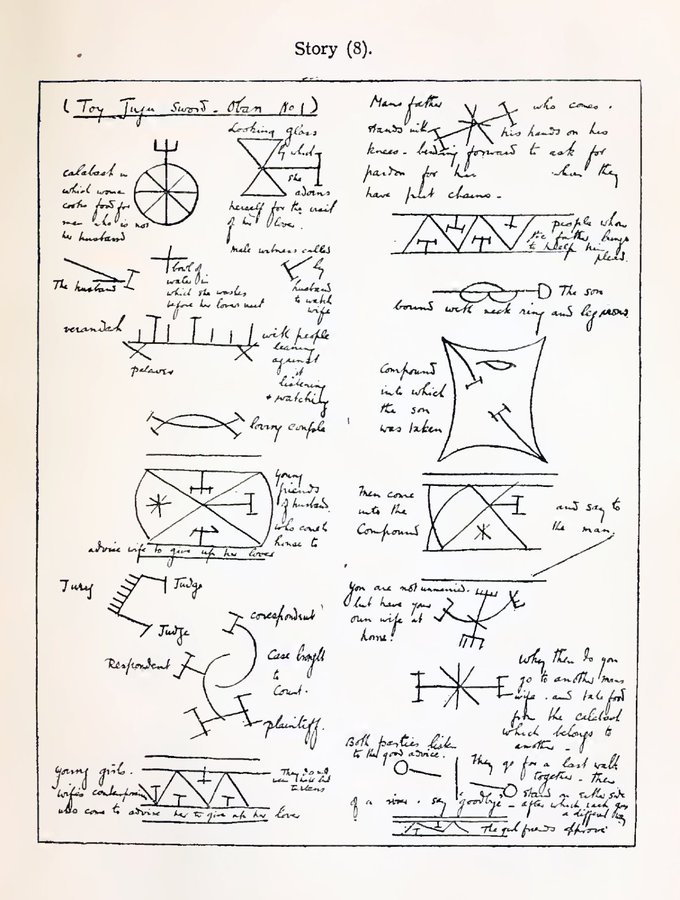 Story (8).
(Toy Juju Sword - Oban No 1)
calabash in
which woman
cooks food for
man who is not
her husband
Looking glass
by which
she
adorns
herself for the visit
of her lover.
The husband
bowl of
water in
which she washes
before her lover
male witness called
by
husband
to watch
wife
verandah
with people
leaning
against
it
listening
+ watching
palaver
loving couple
young
friends
of husband
who come to
house to
advise wife to give up her lover
Jury
Judge
Judge
corespondent
Respondent
Case brought
to
Court.
plaintiff.
young girls.
wife's
who come to advise her to give up her lover
Mans father
who comes.
Stands with
his hands on his
knees - bending forward to ask for
pardon for him
when they
have put chains.
people whom
the father brings
to help him
plead.
The son
bound with neck ring and leg irons
Compound
into which
the son
was taken
Men come
into the
Compound
and say to
the man.
You are not unmarried.
but have your
own wife at
home!
Why then do you
go to another mans
wife. and take food
from the calabash
which belongs to
another -
Both parties listen
to the good advice.
They go for a last walk
together - then
stand on either side
of a river. say "goodbye" - after which each goes
a different way
The girl friends approve